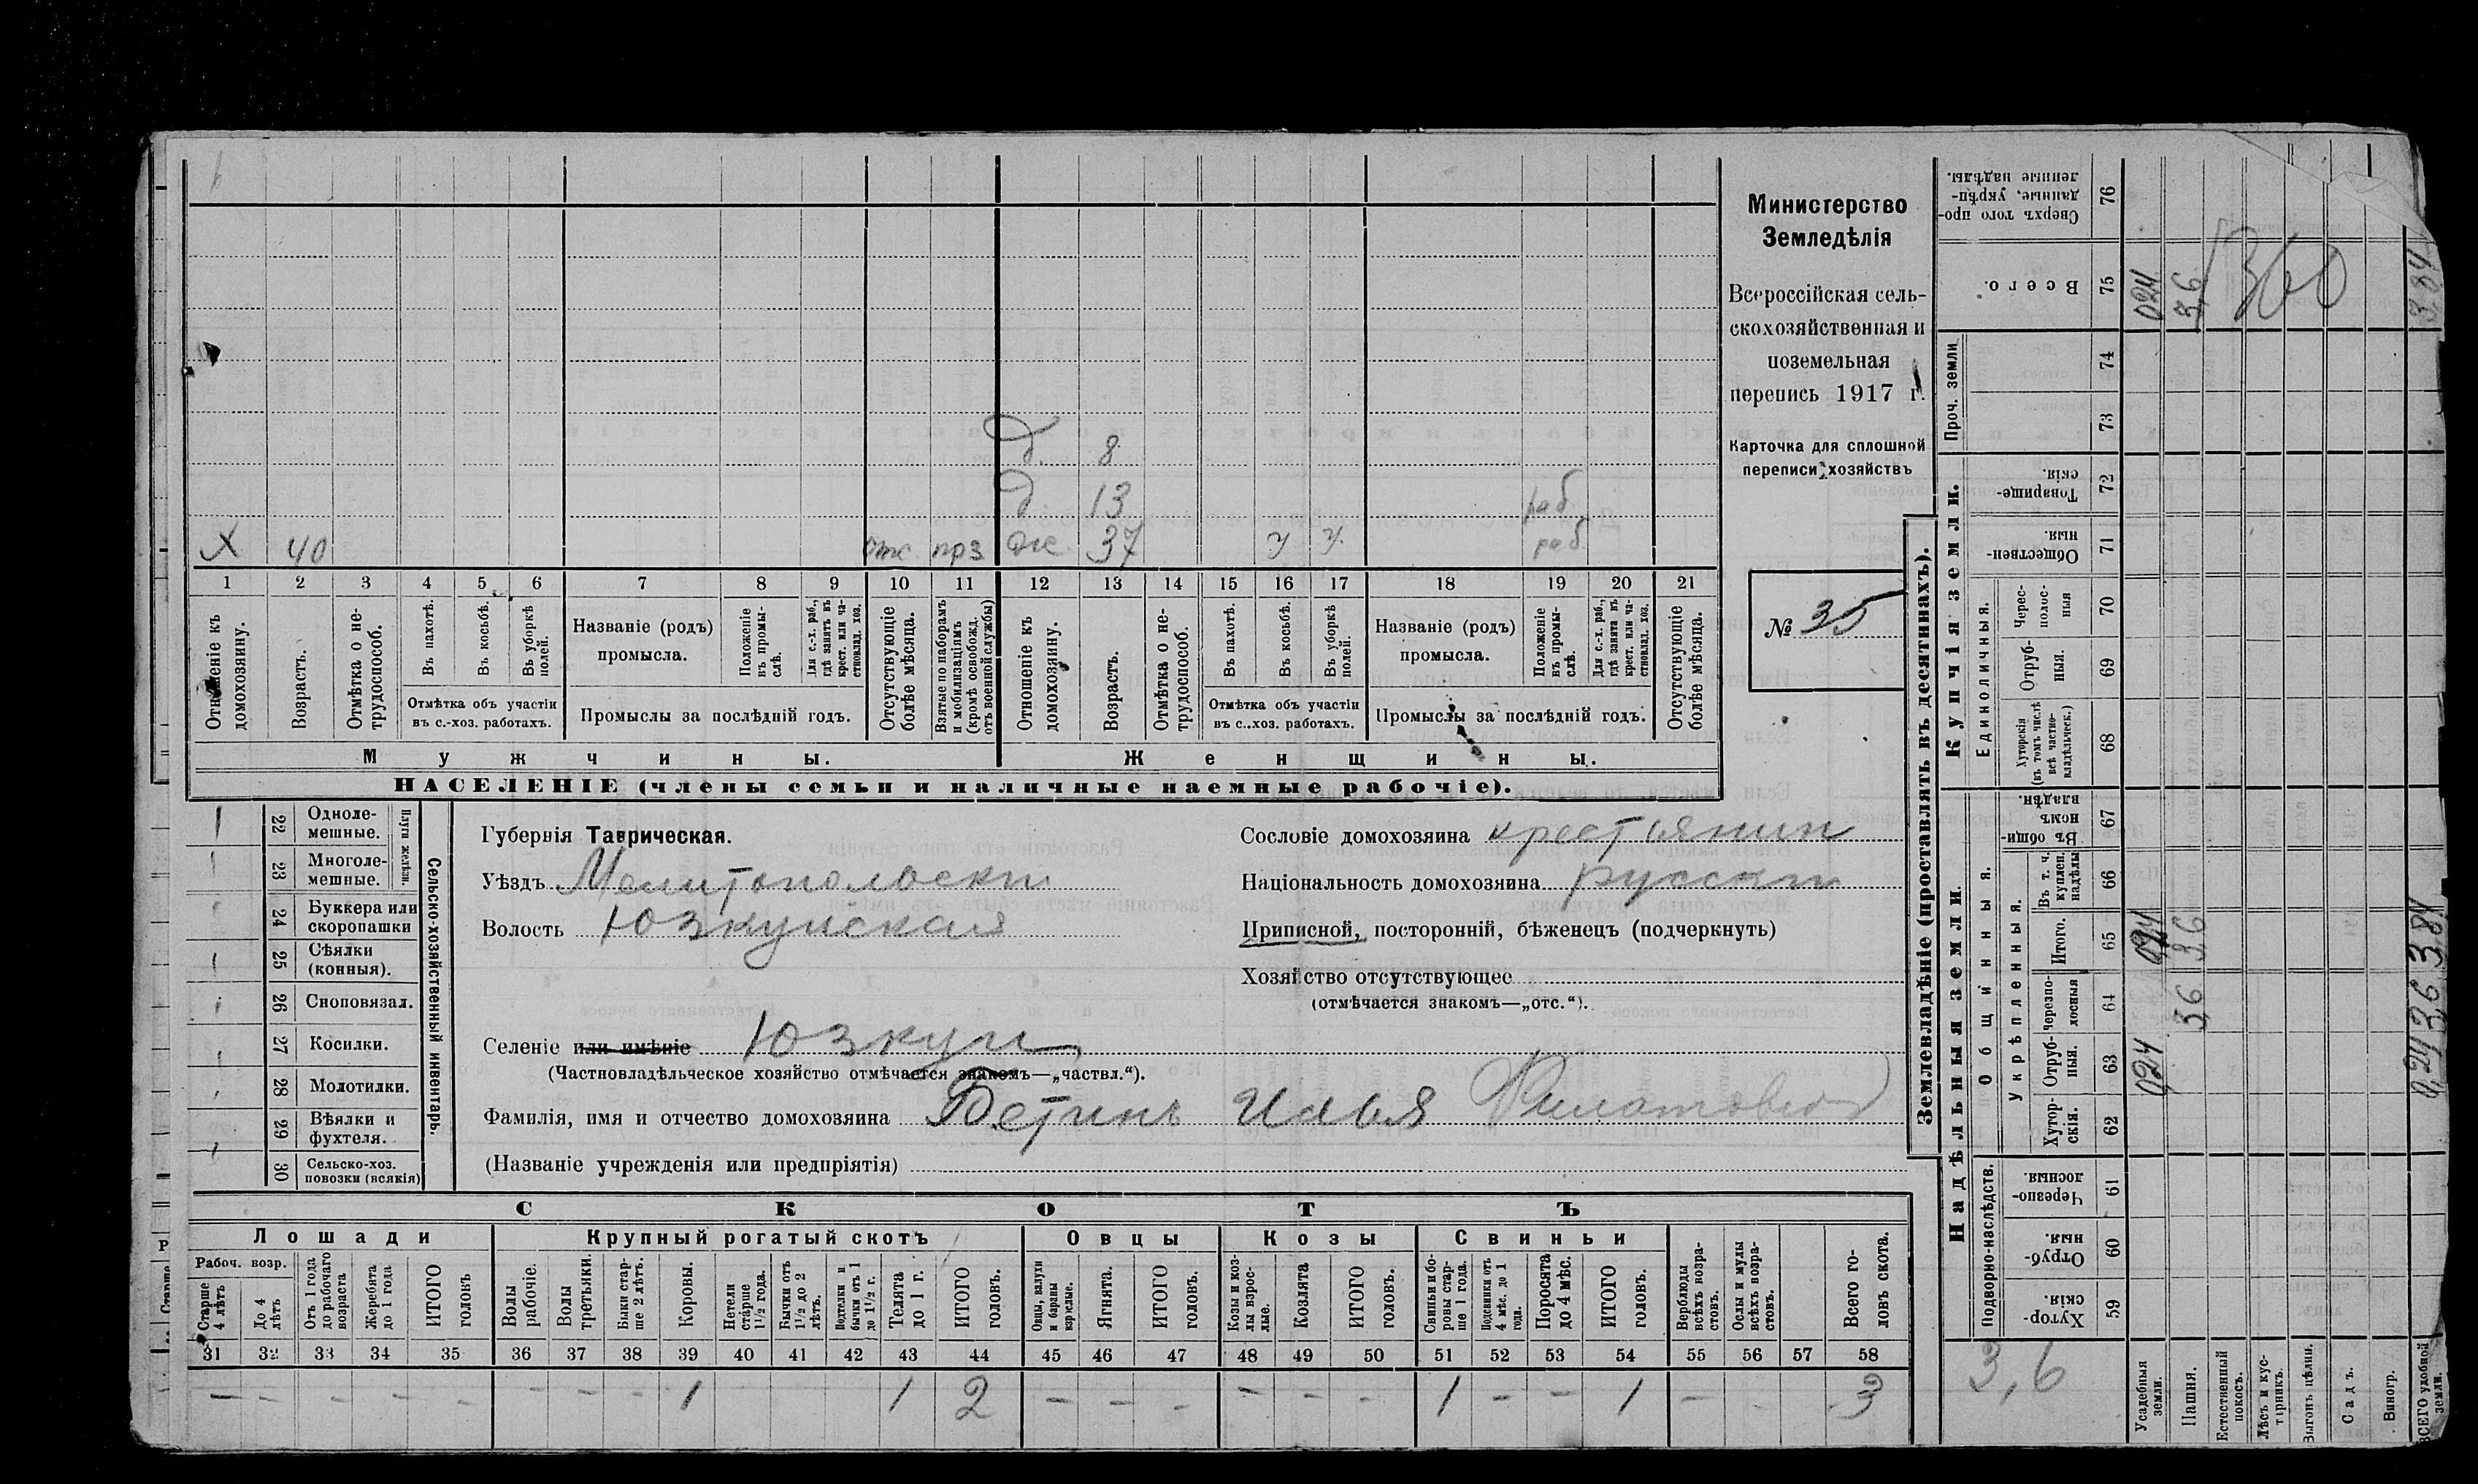 Министерство
Земледѣлія
Всероссійская сель-
скохозяйственная и
поземельная
перепись 1917 г.
Карточка для сплошной
переписи хозяйствъ
№ 35
д. 8
д. 13 раб
Х 40 отс прз ж 37 у у раб
1 2 3 4 5 6 7 8 9 10 11 12 13 14 15 16 17 18 19 20 21
Отношеніе къ домохозяину.
Возрастъ.
Отмѣтка о не-трудоспособ.
Въ пахотѣ.
Въ косьбѣ.
Въ уборкѣ полей.
Отмѣтка объ участіи
въ с.-хоз. работахъ.
Названіе (родъ)
промысла.
Положеніе въ промы-слѣ.
Для с.-х. раб., гдѣ занятъ въ крест. или ча-стновлад. хоз.
Промыслы за послѣдній годъ.
Отсутствующіе болѣе мѣсяца.
Взятые по наборамъ и мобилизаціямъ (кромѣ освобожд. отъ военной службы)
Отношеніе къ домохозяину.
Возрастъ.
Отмѣтка о не-трудоспособ.
Въ пахотѣ.
Въ косьбѣ.
Въ уборкѣ полей.
Отмѣтка объ участіи
въ с.-хоз. работахъ.
Названіе (родъ)
промысла.
Положеніе въ промы-слѣ.
Для с.-х. раб., гдѣ занята въ крест. или ча-стновлад. хоз.
Промыслы за послѣдній годъ.
Отсутствующіе болѣе мѣсяца.
Мужчины. Женщины.
НАСЕЛЕНІЕ (члены семьи и наличные наемные рабочіе).
Сельско-хозяйственный инвентарь.
Плуги желѣзн.
22 Одноле-мешные.
23 Многоле-мешные.
24 Буккера или скоропашки
25 Сѣялки (конныя).
26 Сноповязал.
27 Косилки.
28 Молотилки.
29 Вѣялки и фухтеля.
30 Сельско-хоз. повозки (всякія)
Губернія Таврическая.
Уѣздъ Мелитопольскій
Волость Юзкуйская
Селеніе или имѣніе Юзкуи
(Частновладѣльческое хозяйство отмѣчается знакомъ—„частвл.“).
Фамилія, имя и отчество домохозяина Бетинъ Илья Филатовичъ
(Названіе учрежденія или предпріятія)
Сословіе домохозяина крестьянин
Національность домохозяина русскій
Приписной, посторонній, бѣженецъ (подчеркнуть)
Хозяйство отсутствующее
(отмѣчается знакомъ—„отс.“).
СКОТЪ
Лошади Крупный рогатый скотъ Овцы Козы Свиньи
Рабоч. возр.
Старше 4 лѣтъ
До 4 лѣтъ
Отъ 1 года до рабочаго возраста
Жеребята до 1 года
ИТОГО головъ
Волы рабочіе.
Волы третьяки.
Быки стар-ше 2 лѣтъ.
Коровы.
Нетели старше 1 1/2 года.
Бычки отъ 1 1/2 до 2 лѣтъ.
Подтелки и бычки отъ 1 до 1 1/2 г.
Телята до 1 г.
ИТОГО головъ.
Овцы, валухи и бараны взрослые.
Ягнята.
ИТОГО головъ.
Козы и коз-лы взрос-лые.
Козлята
ИТОГО головъ.
Свиньи и бо-ровы стар-ше 1 года.
Подсвинки отъ 4 мѣс. до 1 года.
Поросята до 4 мѣс.
ИТОГО головъ.
Верблюды всѣхъ возра-стовъ.
Ослы и мулы всѣхъ возра-стовъ.
Всего го-ловъ скота.
31 32 33 34 35 36 37 38 39 40 41 42 43 44 45 46 47 48 49 50 51 52 53 54 55 56 57 58
– – – – – – – – 1 1 2 – – – – – – 1 – – 1 – 3
Землевладѣніе (проставлять въ десятинахъ).
Надѣльныя земли. Купчія земли. Проч. земли
Подворно-наслѣдств.
Общинныя.
Укрѣпленныя.
Единоличныя.
59 Хутор-скія.
60 Отруб-ныя.
61 Черезпо-лосныя
62 Хутор-скія.
63 Отруб-ныя.
64 Черезпо-лосныя
65 Итого.
66 Въ т. ч. куплен. надѣлы
67 Въ общин-номъ владѣн.
68 Хуторскія (въ томъ числѣ всѣ частно-владѣльческ.)
69 Отруб-ныя.
70 Черес-полос-ныя
71 Обществен-ныя.
72 Товарище-скія.
73
74
75 Всего.
76 Сверхъ того про-данные, укрѣп-ленные надѣлы.
3,6
Усадебныя земли. 0,24 0,24 0,24
Пашня. 3,6 3,6 3,6
Естественный покосъ.
Лѣсъ и кус-тарникъ.
Выгонъ, цѣлин.
Садъ.
Виногр.
ВСЕГО удобной земли. 0,24 3,6 3,84 3,84
360